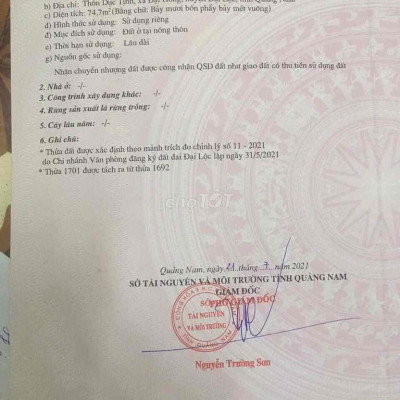 b) Địa chỉ: Thôn Dục Tịnh, xã Đại
c) Diện tích: 74,7m² (Bằng chữ: Bảy mươi bốn phẩy bảy mét vuông)
d) Hình thức sử dụng: Sử dụng riêng
đ) Mục đích sử dụng: Đất ở tại nông thôn
e) Thời hạn sử dụng: Lâu dài
g) Nguồn gốc sử dụng:
Nhận chuyển nhượng đất được công nhận QSD đất như giao đất có thu tiền sử dụng đất
2. Nhà ở: -/-
3. Công trình xây dựng khác: -/-
4. Rừng sản xuất là rừng trồng: -/-
5. Cây lâu năm: -/-
6. Ghi chú:
* Thửa đất được xác định theo mảnh trích đo chỉnh lý số 11 - 2021
do Chi nhánh Văn phòng đăng ký đất đai Đại Lộc lập ngày 31/5/2021
* Thửa 1701 được tách ra từ thửa 1692
choTỐT
Quảng Nam, ngày 21 tháng 7 năm 2021
SỞ TÀI NGUYÊN VÀ MÔI TRƯỜNG TỈNH QUẢNG NAM
GIÁM ĐỐC
PHÓ GIÁM ĐỐC
SỞ
TÀI NGUYÊN
VÀ MÔI TRƯỜNG
TỈNH QUẢNG NAM
Nguyễn Trường Sơn